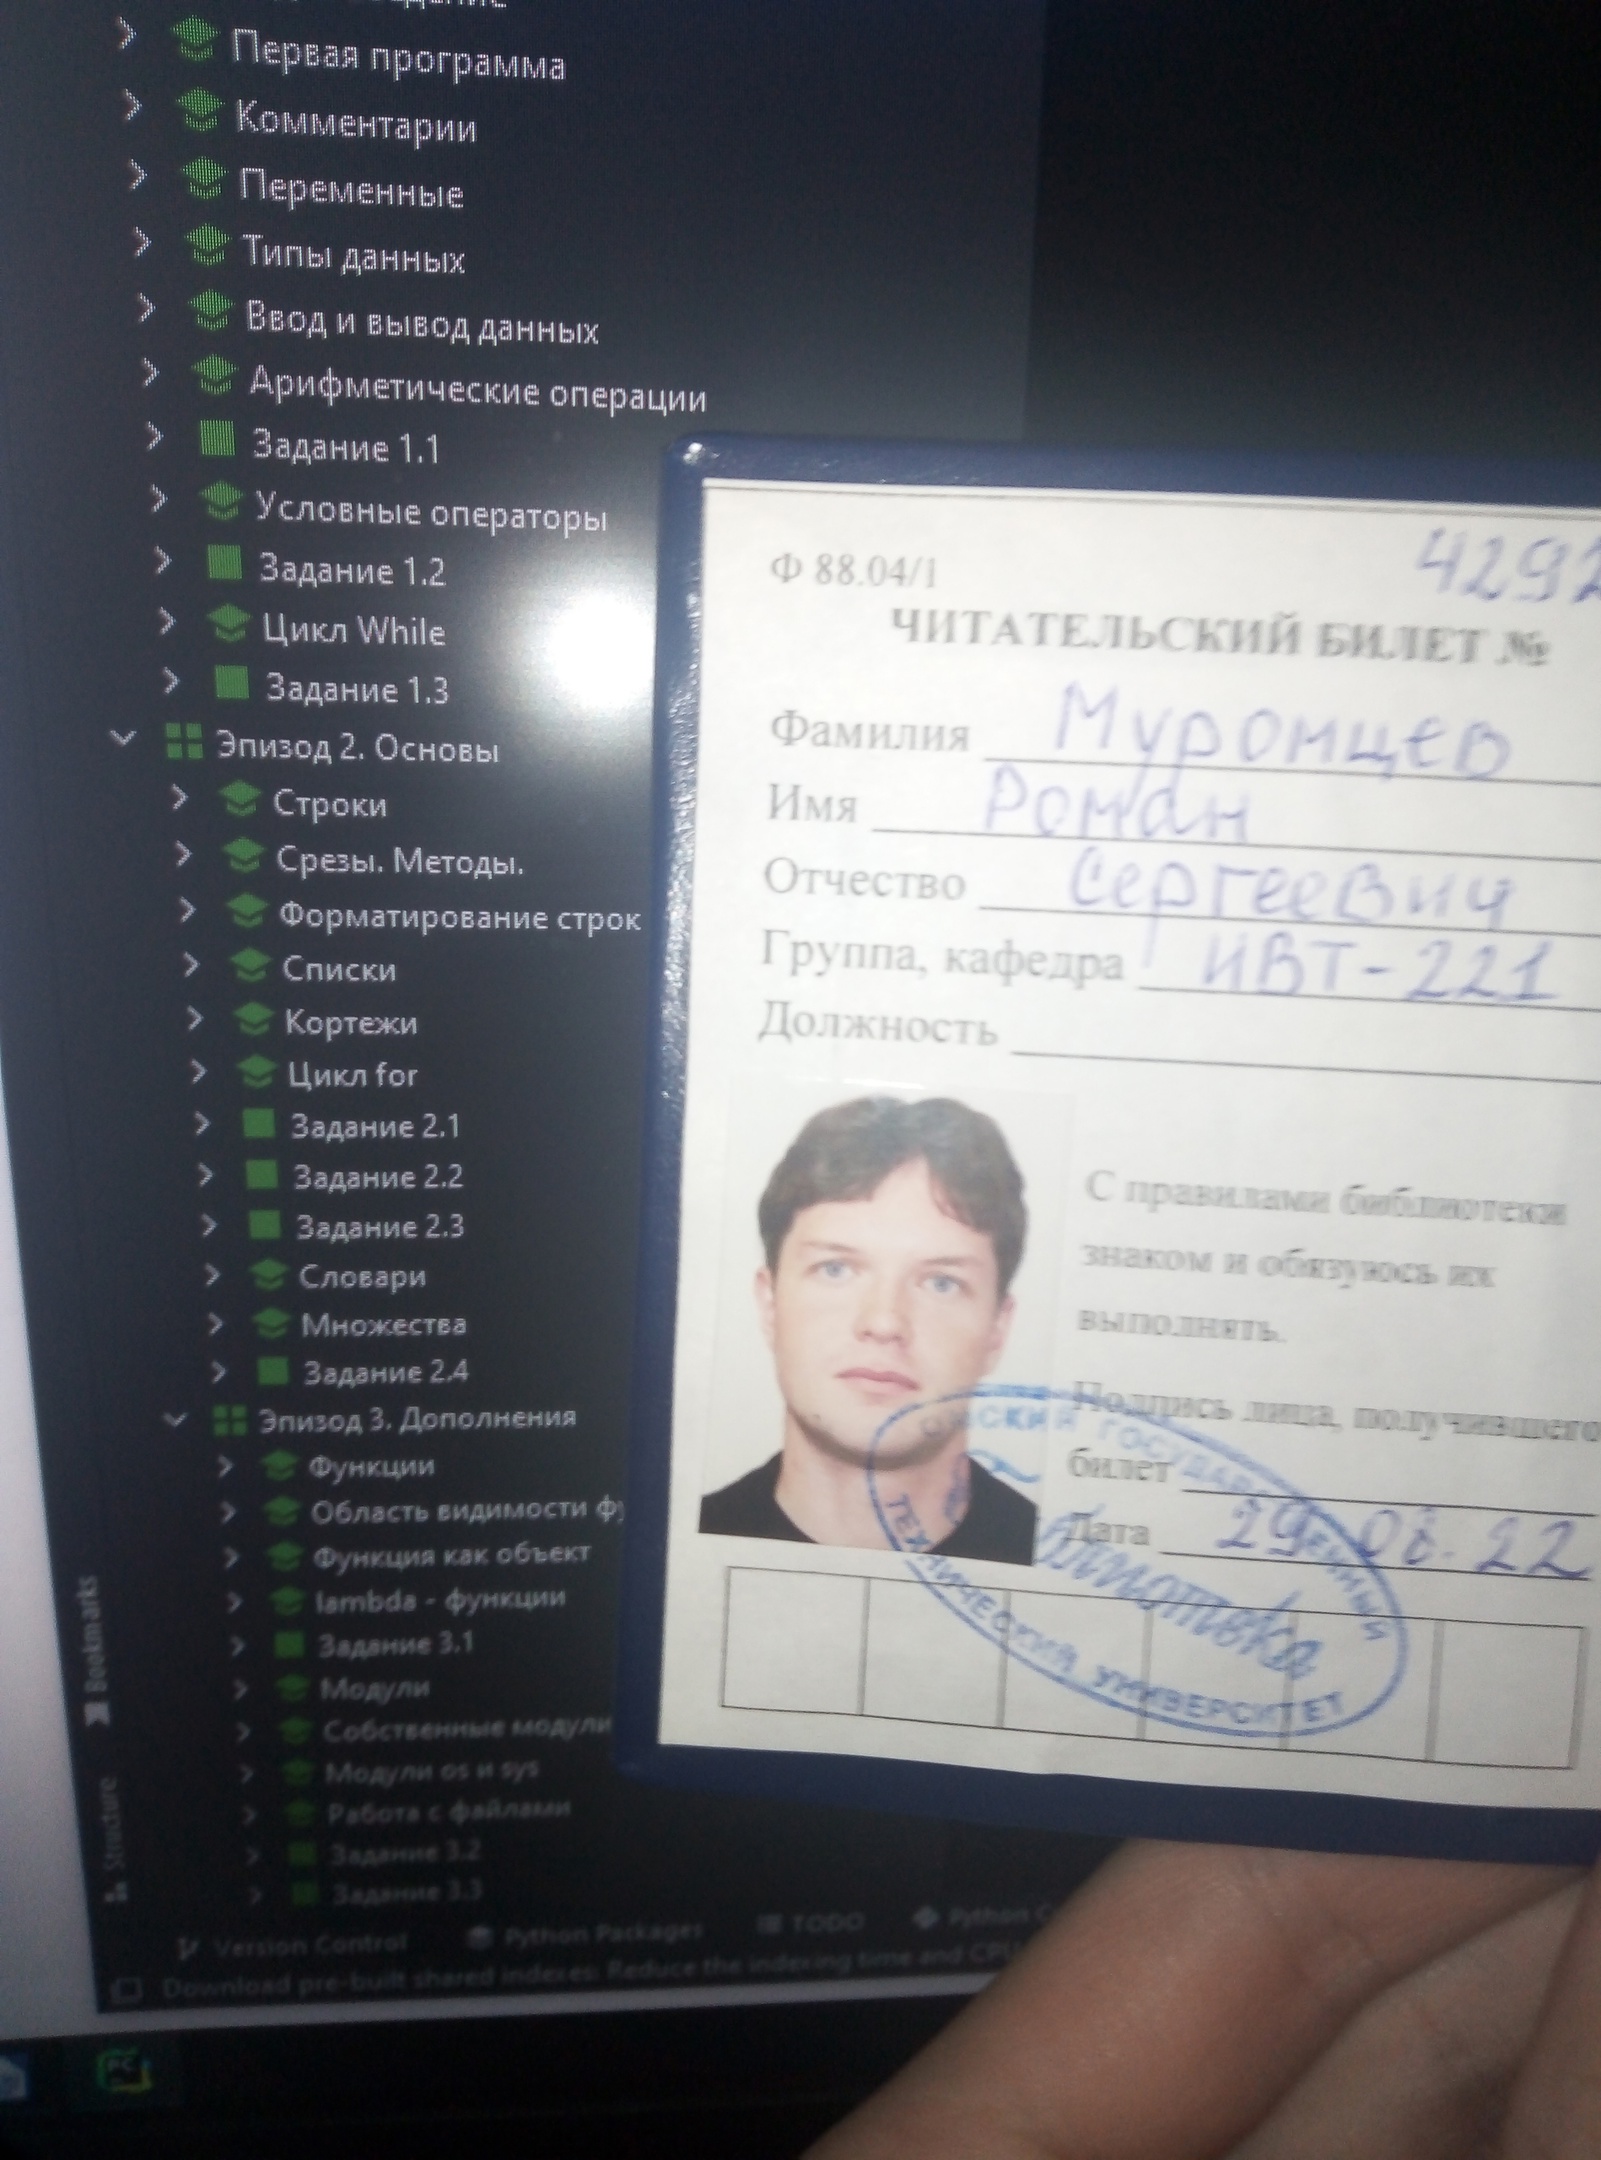 Первая программа
Комментарии
Переменные
Типы данных
Ввод и вывод данных
Арифметические операции
Задание 1.1
Условные операторы
Задание 1.2
Цикл While
Задание 1.3
Эпизод 2. Основы
Строки
Срезы. Методы.
Форматирование строк
Списки
Кортежи
Цикл for
Задание 2.1
Задание 2.2
Задание 2.3
Словари
Множества
Задание 2.4
Эпизод 3. Дополнения
Функции
Область видимости
Функция как объект
lambda - функции
Задание 3.1
Модули
Собственные модули
Модули os и sys
Работа с файлами
Задание 3.2
Задание 3.3
Bookmarks
Structure
Version Control
Python Packages
TODO
Python
Download pre-built shared indexes: Reduce the indexing time and CPU
PC
Ф 88.04/1
4292
ЧИТАТЕЛЬСКИЙ БИЛЕТ №
Фамилия Муромцев
Имя Роман
Отчество Сергеевич
Группа, кафедра ИВТ-221
Должность
С правилами библиотеки
знаком и обязуюсь их
выполнять.
Подпись лица, получившего
билет
Дата 29.08.22
ОМСКИЙ ГОСУДАРСТВЕННЫЙ
ТЕХНИЧЕСКИЙ УНИВЕРСИТЕТ
библиотека